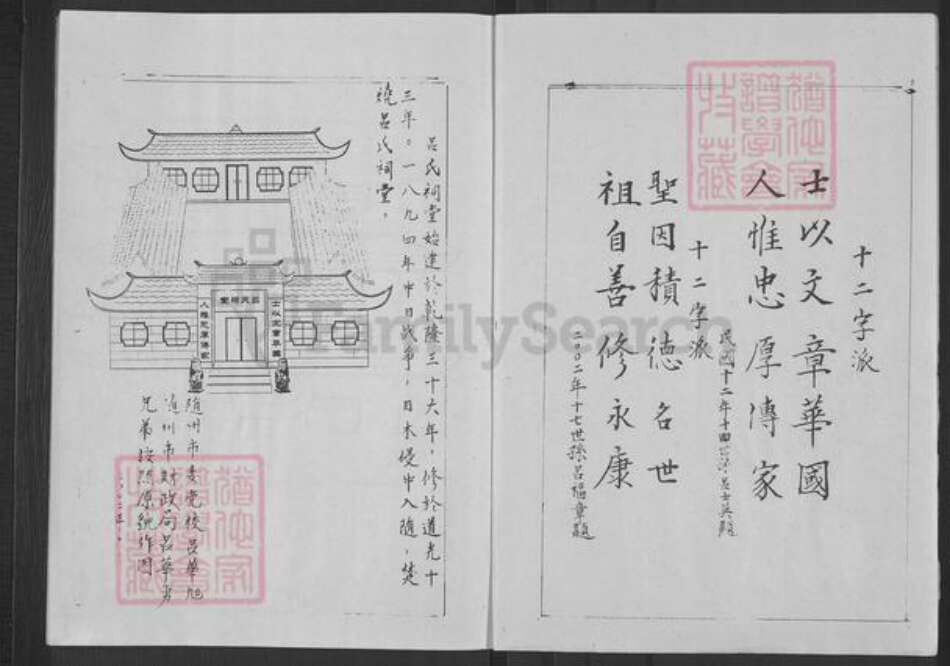 十二字派
士以文章華國
人惟忠厚傳家
民國十二年十四世孫呂士英題
十二字派
聖因積德名世
祖自善修永康
二00二年十七世孫呂福章題
呂氏祠堂始建於乾隆三十六年，修於道光十
三年。一八九四年中日戰爭，日本侵中入隨，焚
燒呂氏祠堂。
呂氏祠堂
士以文章華國
人惟忠厚傳家
隨州市委党校呂華旭
隨州市財政局呂華勇
兄弟按照原貌作图
FamilySearch